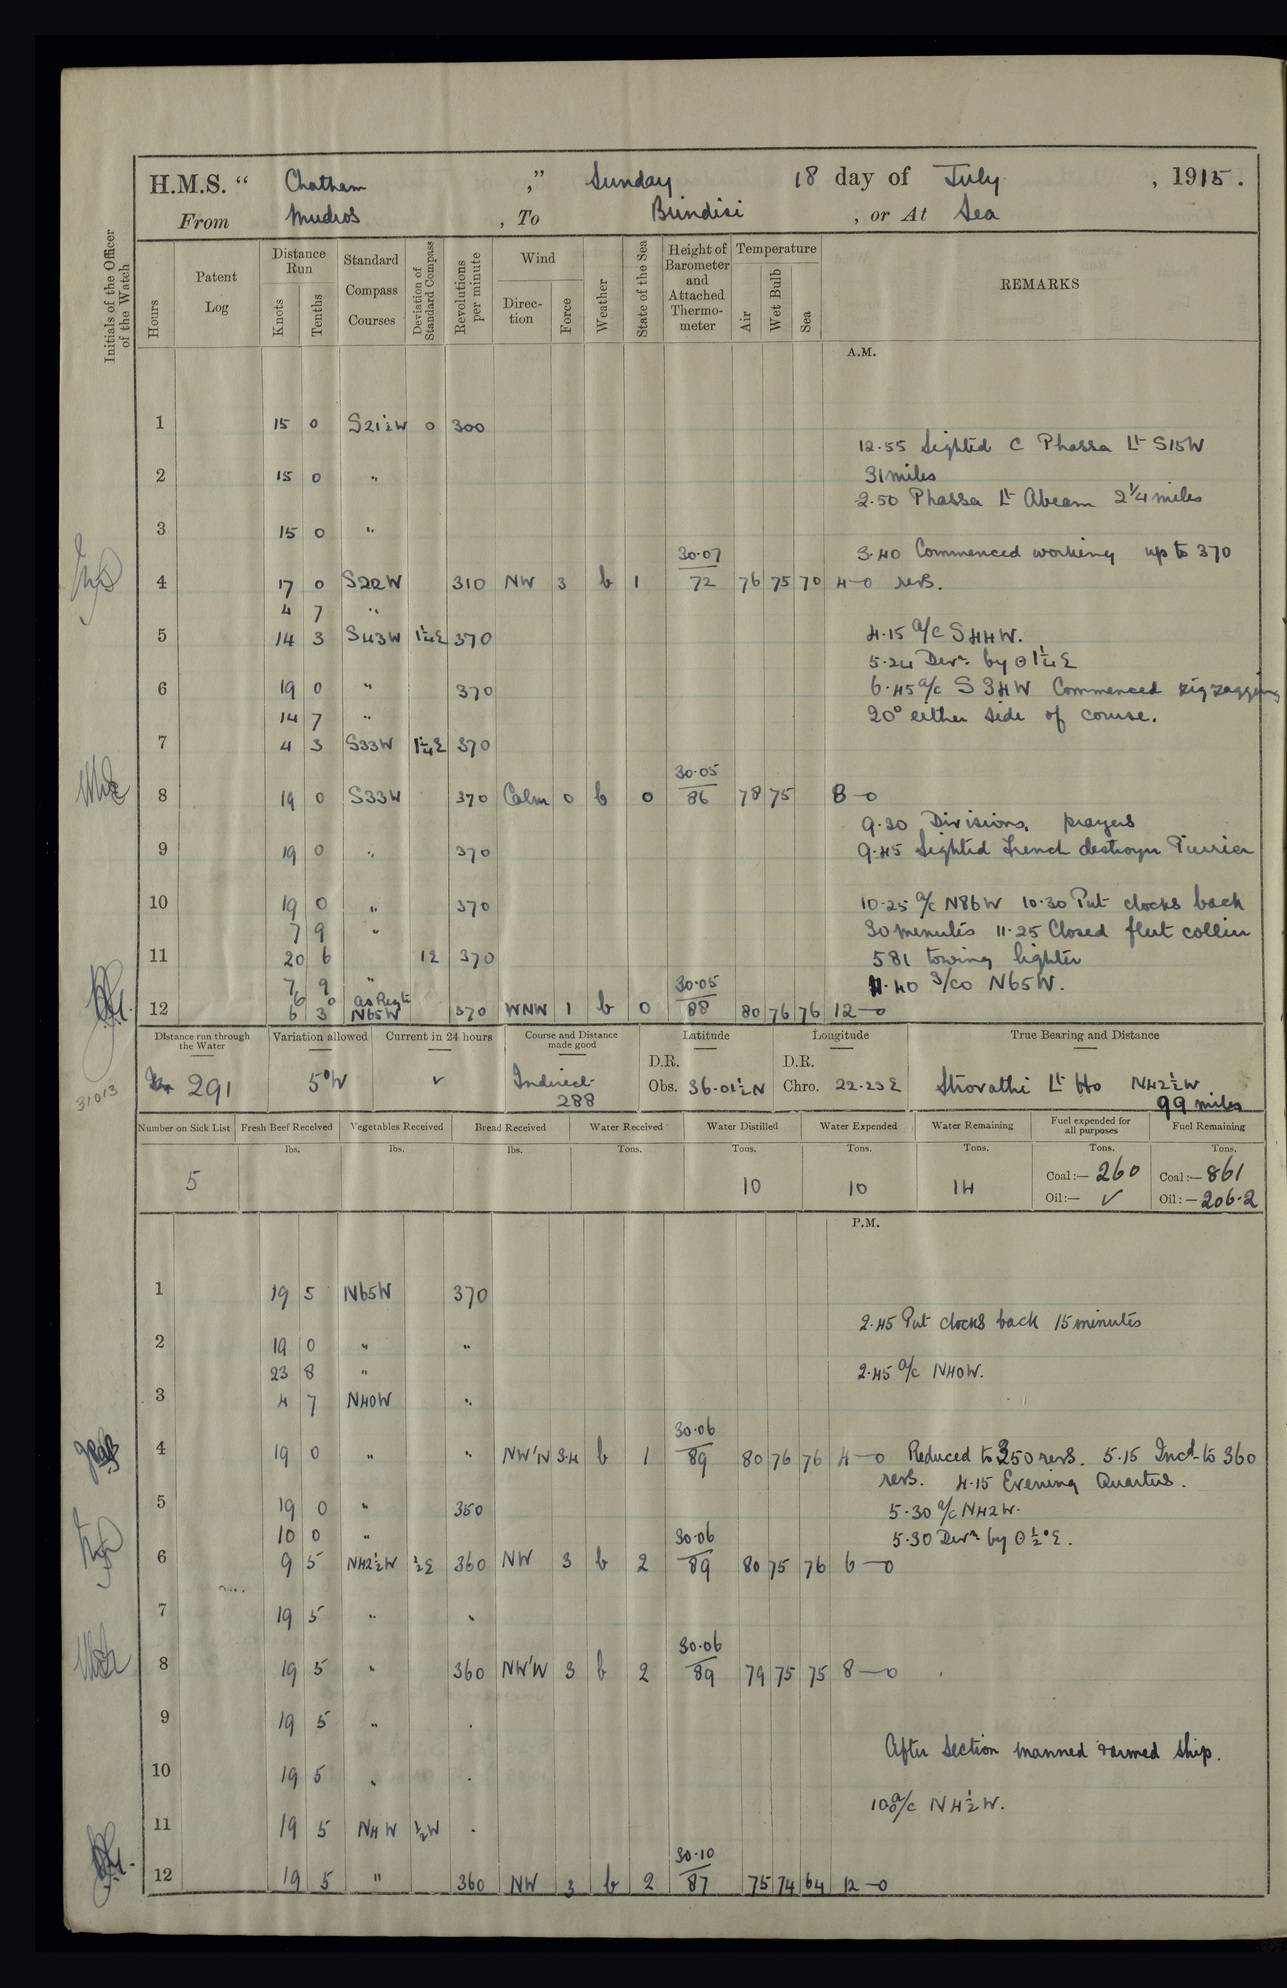 H.M.S. “ Chatham ,” Sunday 18 day of July , 1915 .
From Mudros , To Brindisi , or At Sea
Initials of the Officer of the Watch
Hours
Patent Log
Distance Run
Knots
Tenths
Standard Compass Courses
Deviation of Standard Compass
Revolutions per minute
Wind
Direc- tion
Force
Weather
State of the Sea
Height of Barometer and Attached Thermo- meter
Temperature
Air
Wet Bulb
Sea
REMARKS
A.M.
1 15 0 S21½W 0 300
12.55 Sighted C Phassa Lt S15W
2 15 0 "
31 miles
2.50 Phassa Lt Abeam 2¼ miles
3 15 0 "
30.07 3.40 Commenced working up to 370
4 17 0 S22W 310 NW 3 b 1 72 76 75 70 4—0 revs.
4 7 "
5 14 3 S43W 1¼E 370 4.15 a/c S44W.
5.24 Devn. by ⊙ 1¼E
6 19 0 " 370 6.45 a/c S34W Commenced zig zagging
14 7 " 20° either side of course.
7 4 3 S33W 1¼E 370
30.05
8 19 0 S33W 370 Calm 0 b 0 86 78 75 8—0
9.30 Divisions. prayers
9 19 0 " 370 9.45 Sighted French destroyer
10 19 0 " 370 10.25 a/c N86W 10.30 Put clocks back
7 9 " 30 minutes 11.25 Closed fleet collier
11 20 6 12 370 581 towing lighter
7 9 " 30.05 11.40 S/Co N65W.
6 0 as Reqte
12 6 3 N65W 370 WNW 1 b 0 88 80 76 76 12—0
Distance run through the Water
Variation allowed
Current in 24 hours
Course and Distance made good
Latitude
Longitude
True Bearing and Distance
D.R. D.R.
291 5°W ✓ Indirect 288 Obs. 36-01½N Chro. 22-23E Strovathi Lt Ho N42½W
99 miles
31013
Number on Sick List
Fresh Beef Received
Vegetables Received
Bread Received
Water Received
Water Distilled
Water Expended
Water Remaining
Fuel expended for all purposes
Fuel Remaining
lbs. lbs. lbs. Tons. Tons. Tons. Tons. Tons. Tons.
5 10 10 14 Coal:— 260 Coal:— 861
Oil:— ✓ Oil:— 206.2
P.M.
1 19 5 N65W 370
2.45 Put clocks back 15 minutes
2 19 0 " "
23 8 " 2.45 a/c N40W.
3 4 7 N40W "
30.06
4 19 0 " " NW'N 3.4 b 1 89 80 76 76 4—0 Reduced to 350 revs. 5.15 Incd. to 360
revs. 4.15 Evening Quarters.
5 19 0 " 350 5.30 a/c N42W.
10 0 " 30.06 5.30 Devn by ⊙ ½°E.
6 9 5 N42½W ½E 360 NW 3 b 2 89 80 75 76 6—0
7 19 5 " "
30.06
8 19 5 " 360 NW'W 3 b 2 89 79 75 75 8—0
9 19 5 " .
After Section manned & armed ship.
10 19 5 " .
10.0 a/c N4½W.
11 19 5 N4W ½W .
30.10
12 19 5 " 360 NW 3 b 2 87 75 74 64 12—0